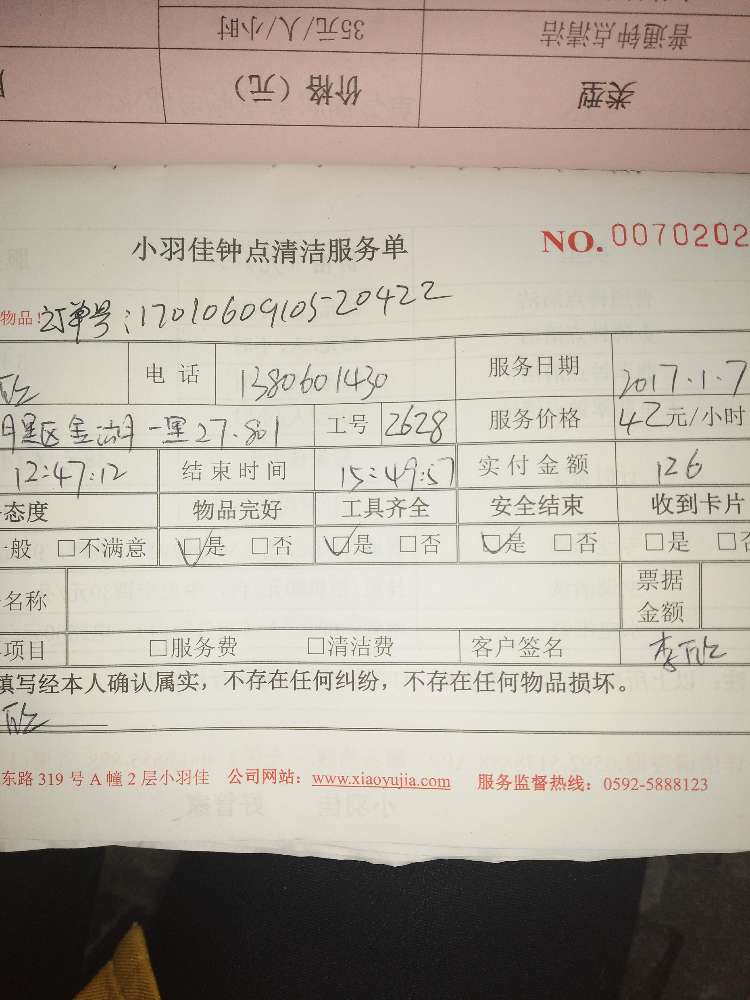 35元/人/小时 普通钟点清洁
价格（元） 类型
小羽佳钟点清洁服务单 NO. 0070202
物品！订单号：17010609105-20422
电话 1380601430 服务日期 2017.1.7
区金湖一里27.801 工号 2628 服务价格 42元/小时
12:47:12 结束时间 15:49:57 实付金额 126
态度 物品完好 工具齐全 安全结束 收到卡片
般 □不满意 □是 □否 □是 □否 □是 □否 □是 □否
名称 票据金额
项目 □服务费 □清洁费 客户签名 李
填写经本人确认属实，不存在任何纠纷，不存在任何物品损坏。
东路 319 号 A 幢 2 层小羽佳 公司网站：www.xiaoyujia.com 服务监督热线：0592-5888123